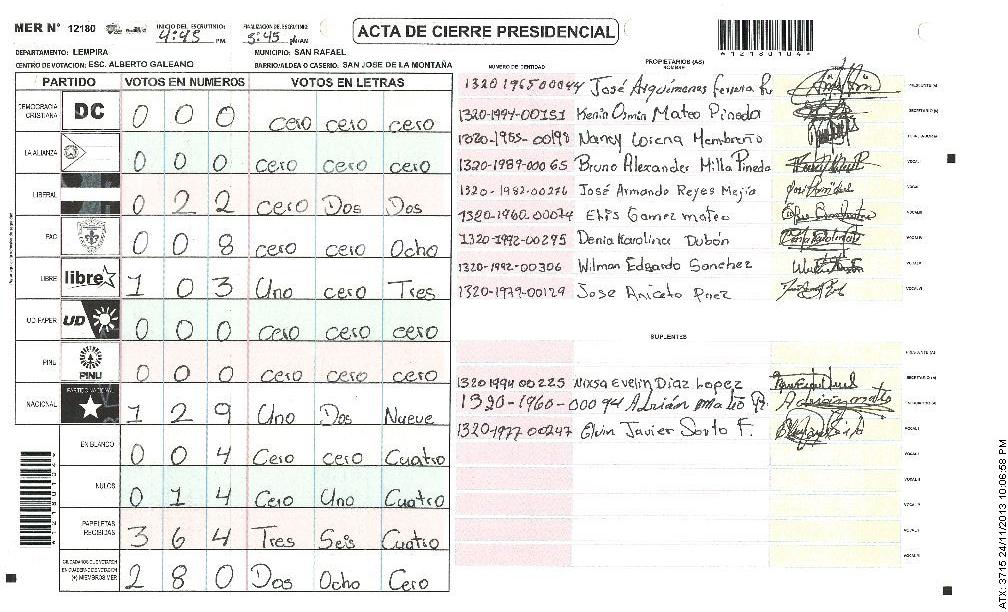 MER N° 12180 INICIO DEL ESCRUTINIO: 4:45 PM FINALIZACION DE ESCRUTINIO: 5:45 PM/AM
ACTA DE CIERRE PRESIDENCIAL
A12180104
DEPARTAMENTO: LEMPIRA MUNICIPIO: SAN RAFAEL
CENTRO DE VOTACION: ESC. ALBERTO GALEANO BARRIO/ALDEA O CASERIO: SAN JOSE DE LA MONTAÑA
PARTIDO VOTOS EN NUMEROS VOTOS EN LETRAS
DEMOCRACIA CRISTIANA DC 0 0 0 cero cero cero
LA ALIANZA 0 0 0 cero cero cero
LIBERAL 0 2 2 cero Dos Dos
PAC 0 0 8 cero cero Ocho
LIBRE libre 1 0 3 Uno cero Tres
UD-FAPER UD 0 0 0 cero cero cero
PINU PINU 0 0 0 cero cero cero
NACIONAL PARTIDO NACIONAL 1 2 9 Uno Dos Nueve
EN BLANCO 0 0 4 Cero cero Cuatro
NULOS 0 1 4 Cero Uno Cuatro
PAPELETAS RECIBIDAS 3 6 4 Tres Seis Cuatro
CIUDADANOS QUE VOTARON EN CUADERNO DE VOTACION (+) MIEMBROS MER 2 8 0 Dos Ocho Cero
NUMERO DE IDENTIDAD PROPIETARIOS (AS) NOMBRE
1320 1965 00044 José Arquímenes
1320-1994-00151 Kevin Osmin Mateo Pineda
1320-1985-00198 Nancy Lorena Membreño
1320-1989-00065 Bruno Alexander Milla Pineda VOCAL I
1320-1982-00276 José Armando Reyes Mejía
1320-1960-00074 Elvis Gamez mateo
1320-1992-00295 Denia Karolina Dubón
1320-1992-00306 Wilman Edgardo Sanchez
1320-1979-00129 Jose Aniceto
SUPLENTES
1320 1994 00225 Nixsa Evelin Díaz Lopez
1320-1960-00094 Adrián
1320-1977 00247 Elvin Javier Sorto F.
ATX: 3715 24/11/2013 10:06:58 PM